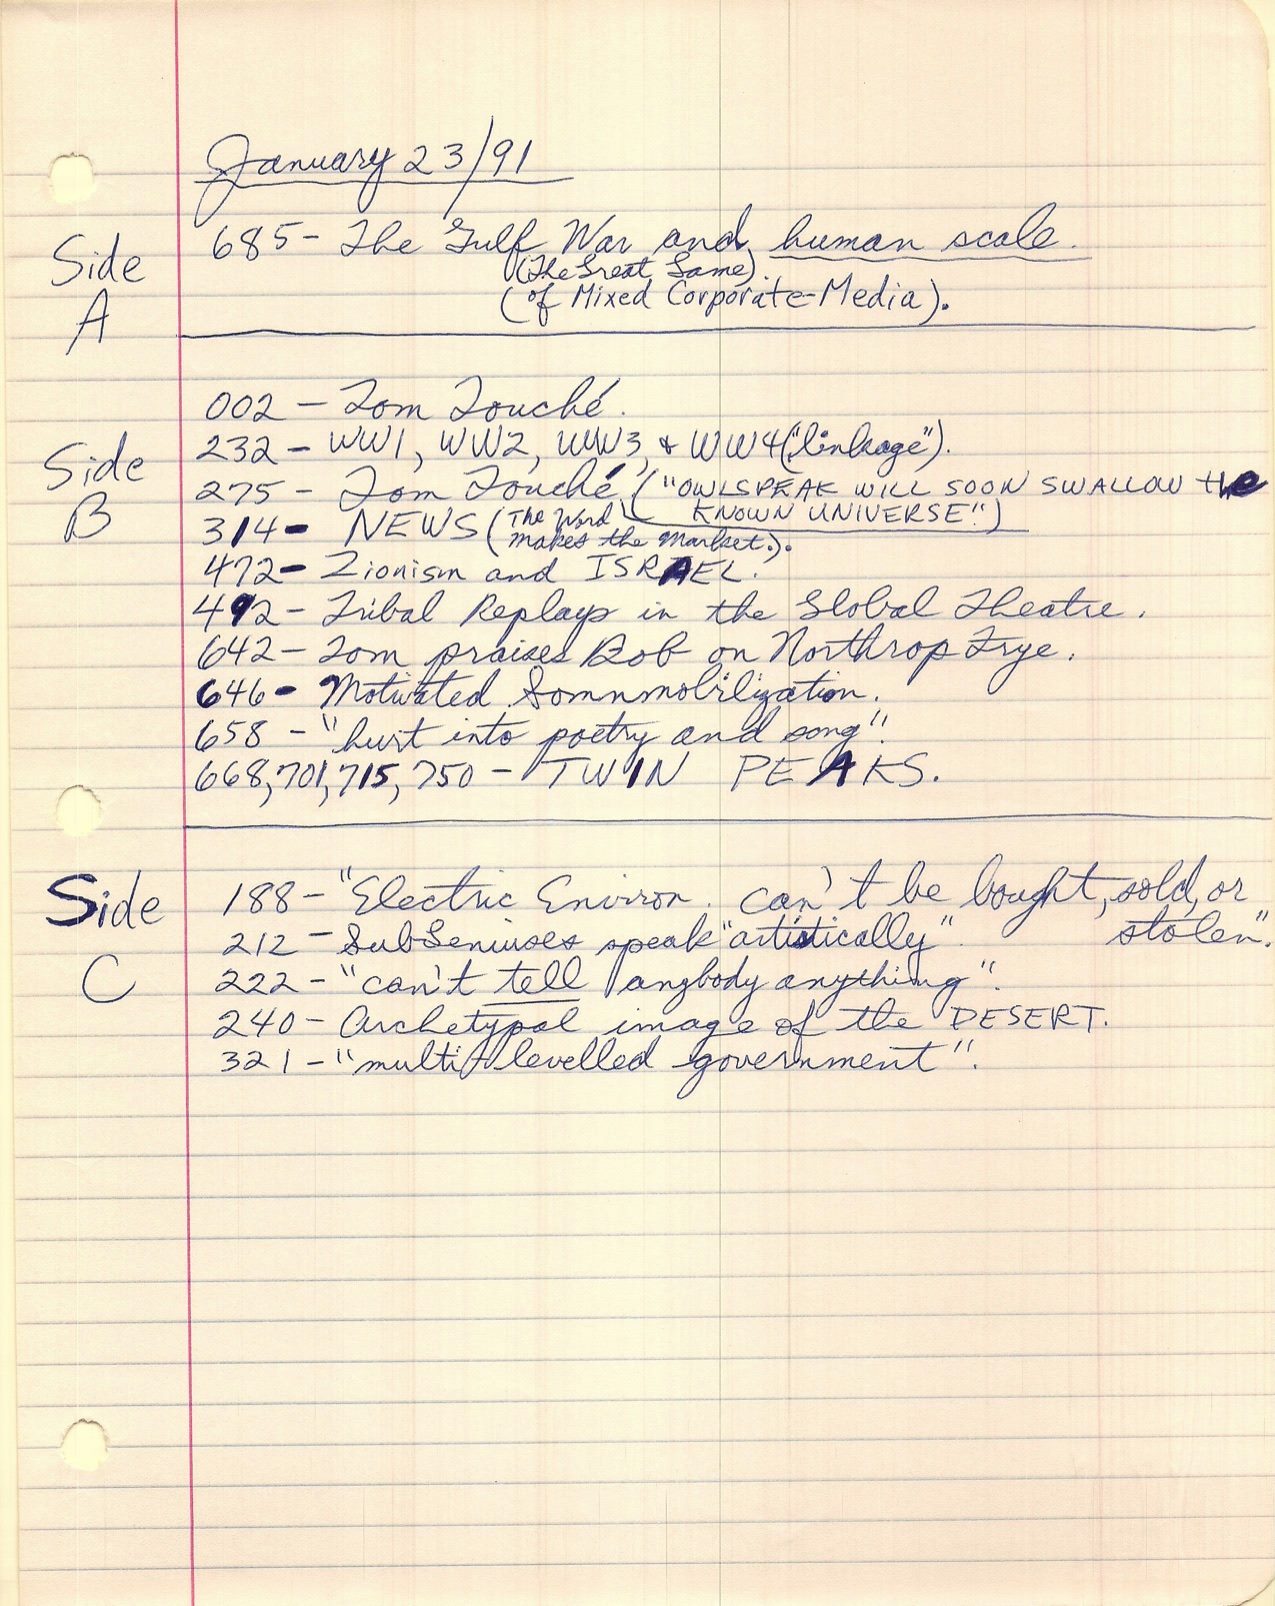 January 23/91
Side A
685- The Gulf War and human scale.
(The Great Game).
(of Mixed Corporate-Media).
Side B
002 - Tom Touché.
232 - WW1, WW2, WW3, & WW4 ("linkage").
275 - Tom Touché ("OWLSPEAK WILL SOON SWALLOW the
KNOWN UNIVERSE")
314 - NEWS (The Word
makes the Market.).
472 - Zionism and ISRAEL.
492 - Tribal Replays in the Global Theatre.
642 - Tom praises Bob on Northrop Frye.
646 - Motivated Somnmobilization.
658 - "hurt into poetry and song".
668, 701, 715, 750 - TWIN PEAKS.
Side C
188 - "Electric Environ. can't be bought, sold, or
stolen".
212 - SubGeniuses speak "artistically".
222 - "can't tell anybody anything".
240 - Archetypal image of the DESERT.
321 - "multi-levelled government".